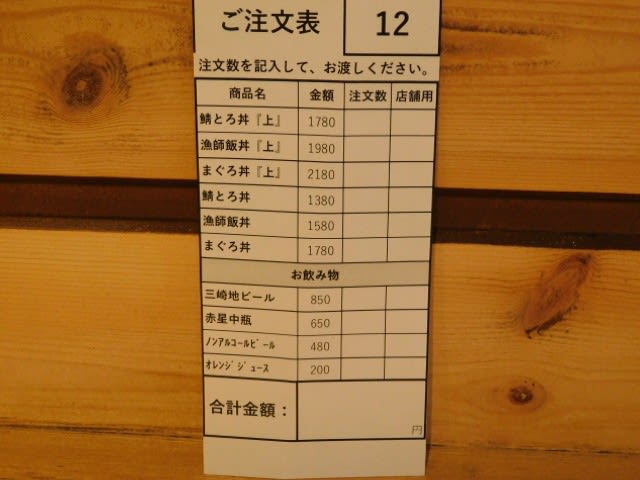 ご注文表 12
注文数を記入して、お渡しください。
商品名 金額 注文数 店舗用
鯖とろ丼『上』 1780
漁師飯丼『上』 1980
まぐろ丼『上』 2180
鯖とろ丼 1380
漁師飯丼 1580
まぐろ丼 1780
お飲み物
三崎地ビール 850
赤星中瓶 650
ﾉﾝｱﾙｺｰﾙﾋﾞｰﾙ 480
ｵﾚﾝｼﾞｼﾞｭｰｽ 200
合計金額：
円